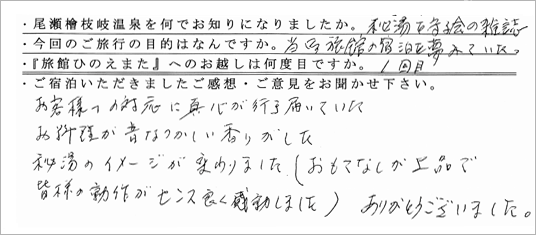 ・尾瀬檜枝岐温泉を何でお知りになりましたか。秘湯を守る会の雑誌
・今回のご旅行の目的はなんですか。当旅館の宿泊を夢みていた。
・『旅館ひのえまた』へのお越しは何度目ですか。1回目
・ご宿泊いただきましたご感想・ご意見をお聞かせ下さい。
お客様への対応に真心が行き届いていた
お料理が昔なつかしい香りがした
秘湯のイメージが変わりました(おもてなしが上品で
皆様の動作がセンス良く感動しました) ありがとうございました。